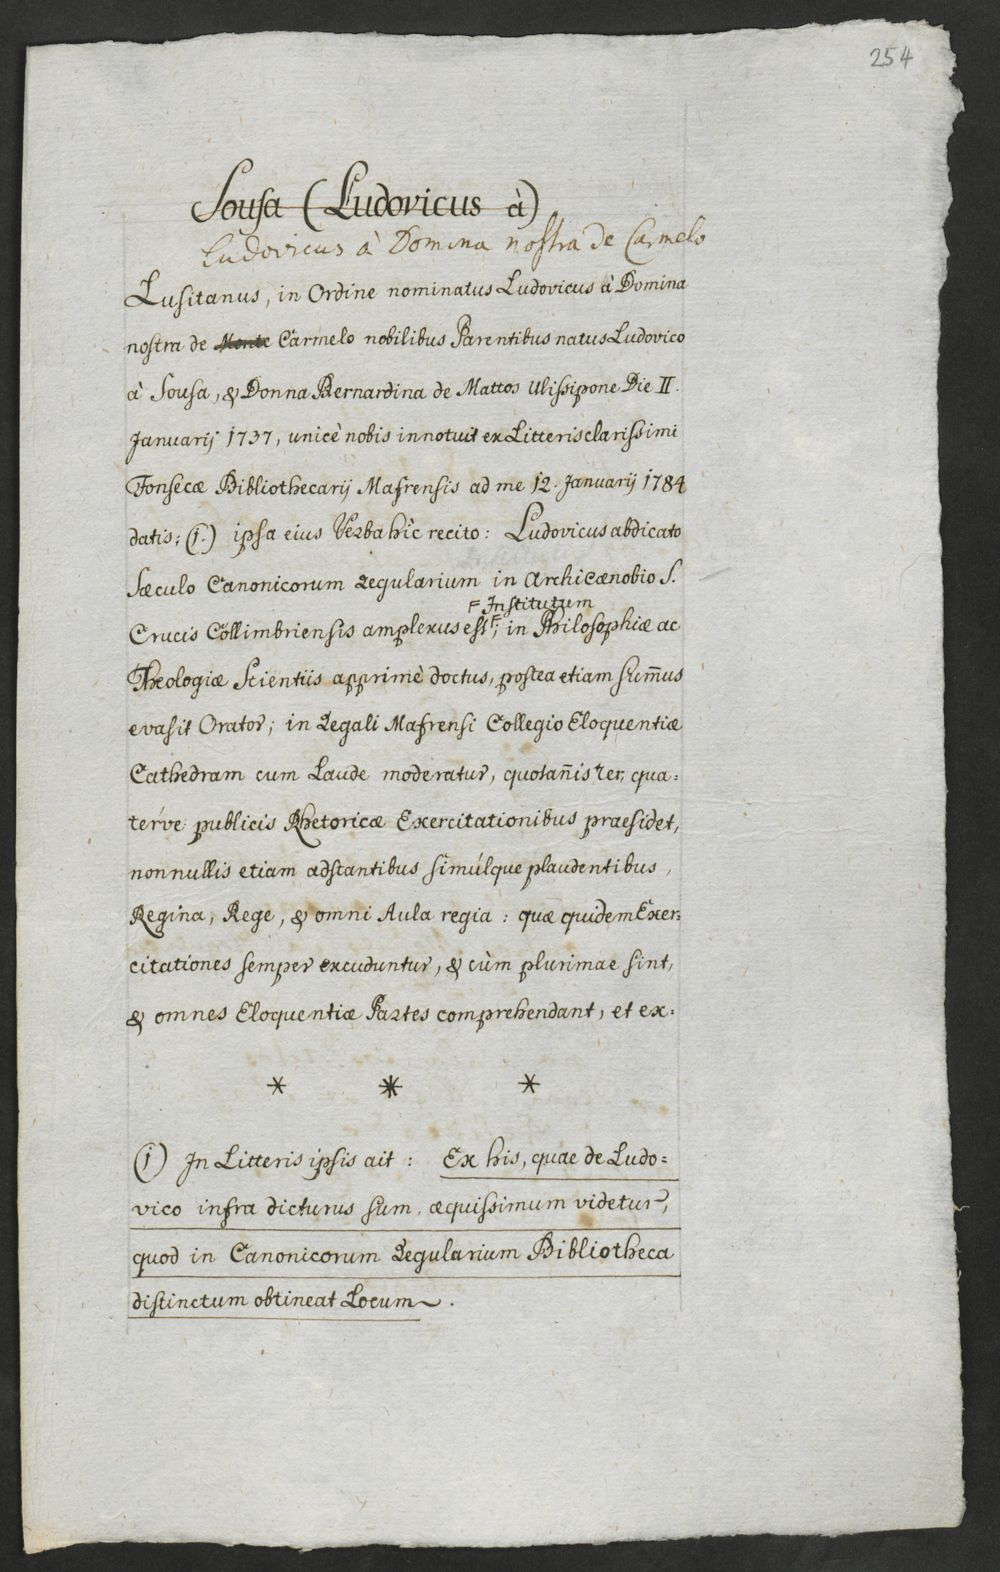 254
Sousa (Ludovicus à)
Ludovicus à Domina nostra de Carmelo
Lusitanus, in Ordine nominatus Ludovicus à Domina
nostra de Monte Carmelo nobilibus Parentibus natus Ludovico
à Sousa, & Donna Bernardina de Mattos Ulissipone Die II.
Januarij 1737, unicè nobis innotuit ex Litteris clarissimi
Fonsecæ Bibliothecarij Mafrensis ad me 12. Januarij 1784
datis; (1.) ipsa eius Verba hîc recito: Ludovicus abdicato
Sæculo Canonicorum Regularium in Archicænobio S.
= Institutum
Crucis Collimbriensis amplexus est =, in Philosophiæ ac
Theologiæ Scientiis apprimè doctus, postea etiam sum̃us
evasit Orator; in Regali Mafrensi Collegio Eloquentiæ
Cathedram cum Laude moderatur, quotan̄is ter, qua:
térve publicis Rhetoricæ Exercitationibus praesidet,
nonnullis etiam adstantibus simúlque plaudentibus,
Regina, Rege, & omni Aula regia: quæ quidem Exer:
citationes semper excuduntur, & cùm plurimae sint,
& omnes Eloquentiæ Partes comprehendant, et ex:
* * *
(1) In Litteris ipsis ait: Ex his, quae de Ludo:
vico infra dicturus sum, æquissimum videtur,
quod in Canonicorum Regularium Bibliotheca
distinctum obtineat Locum.